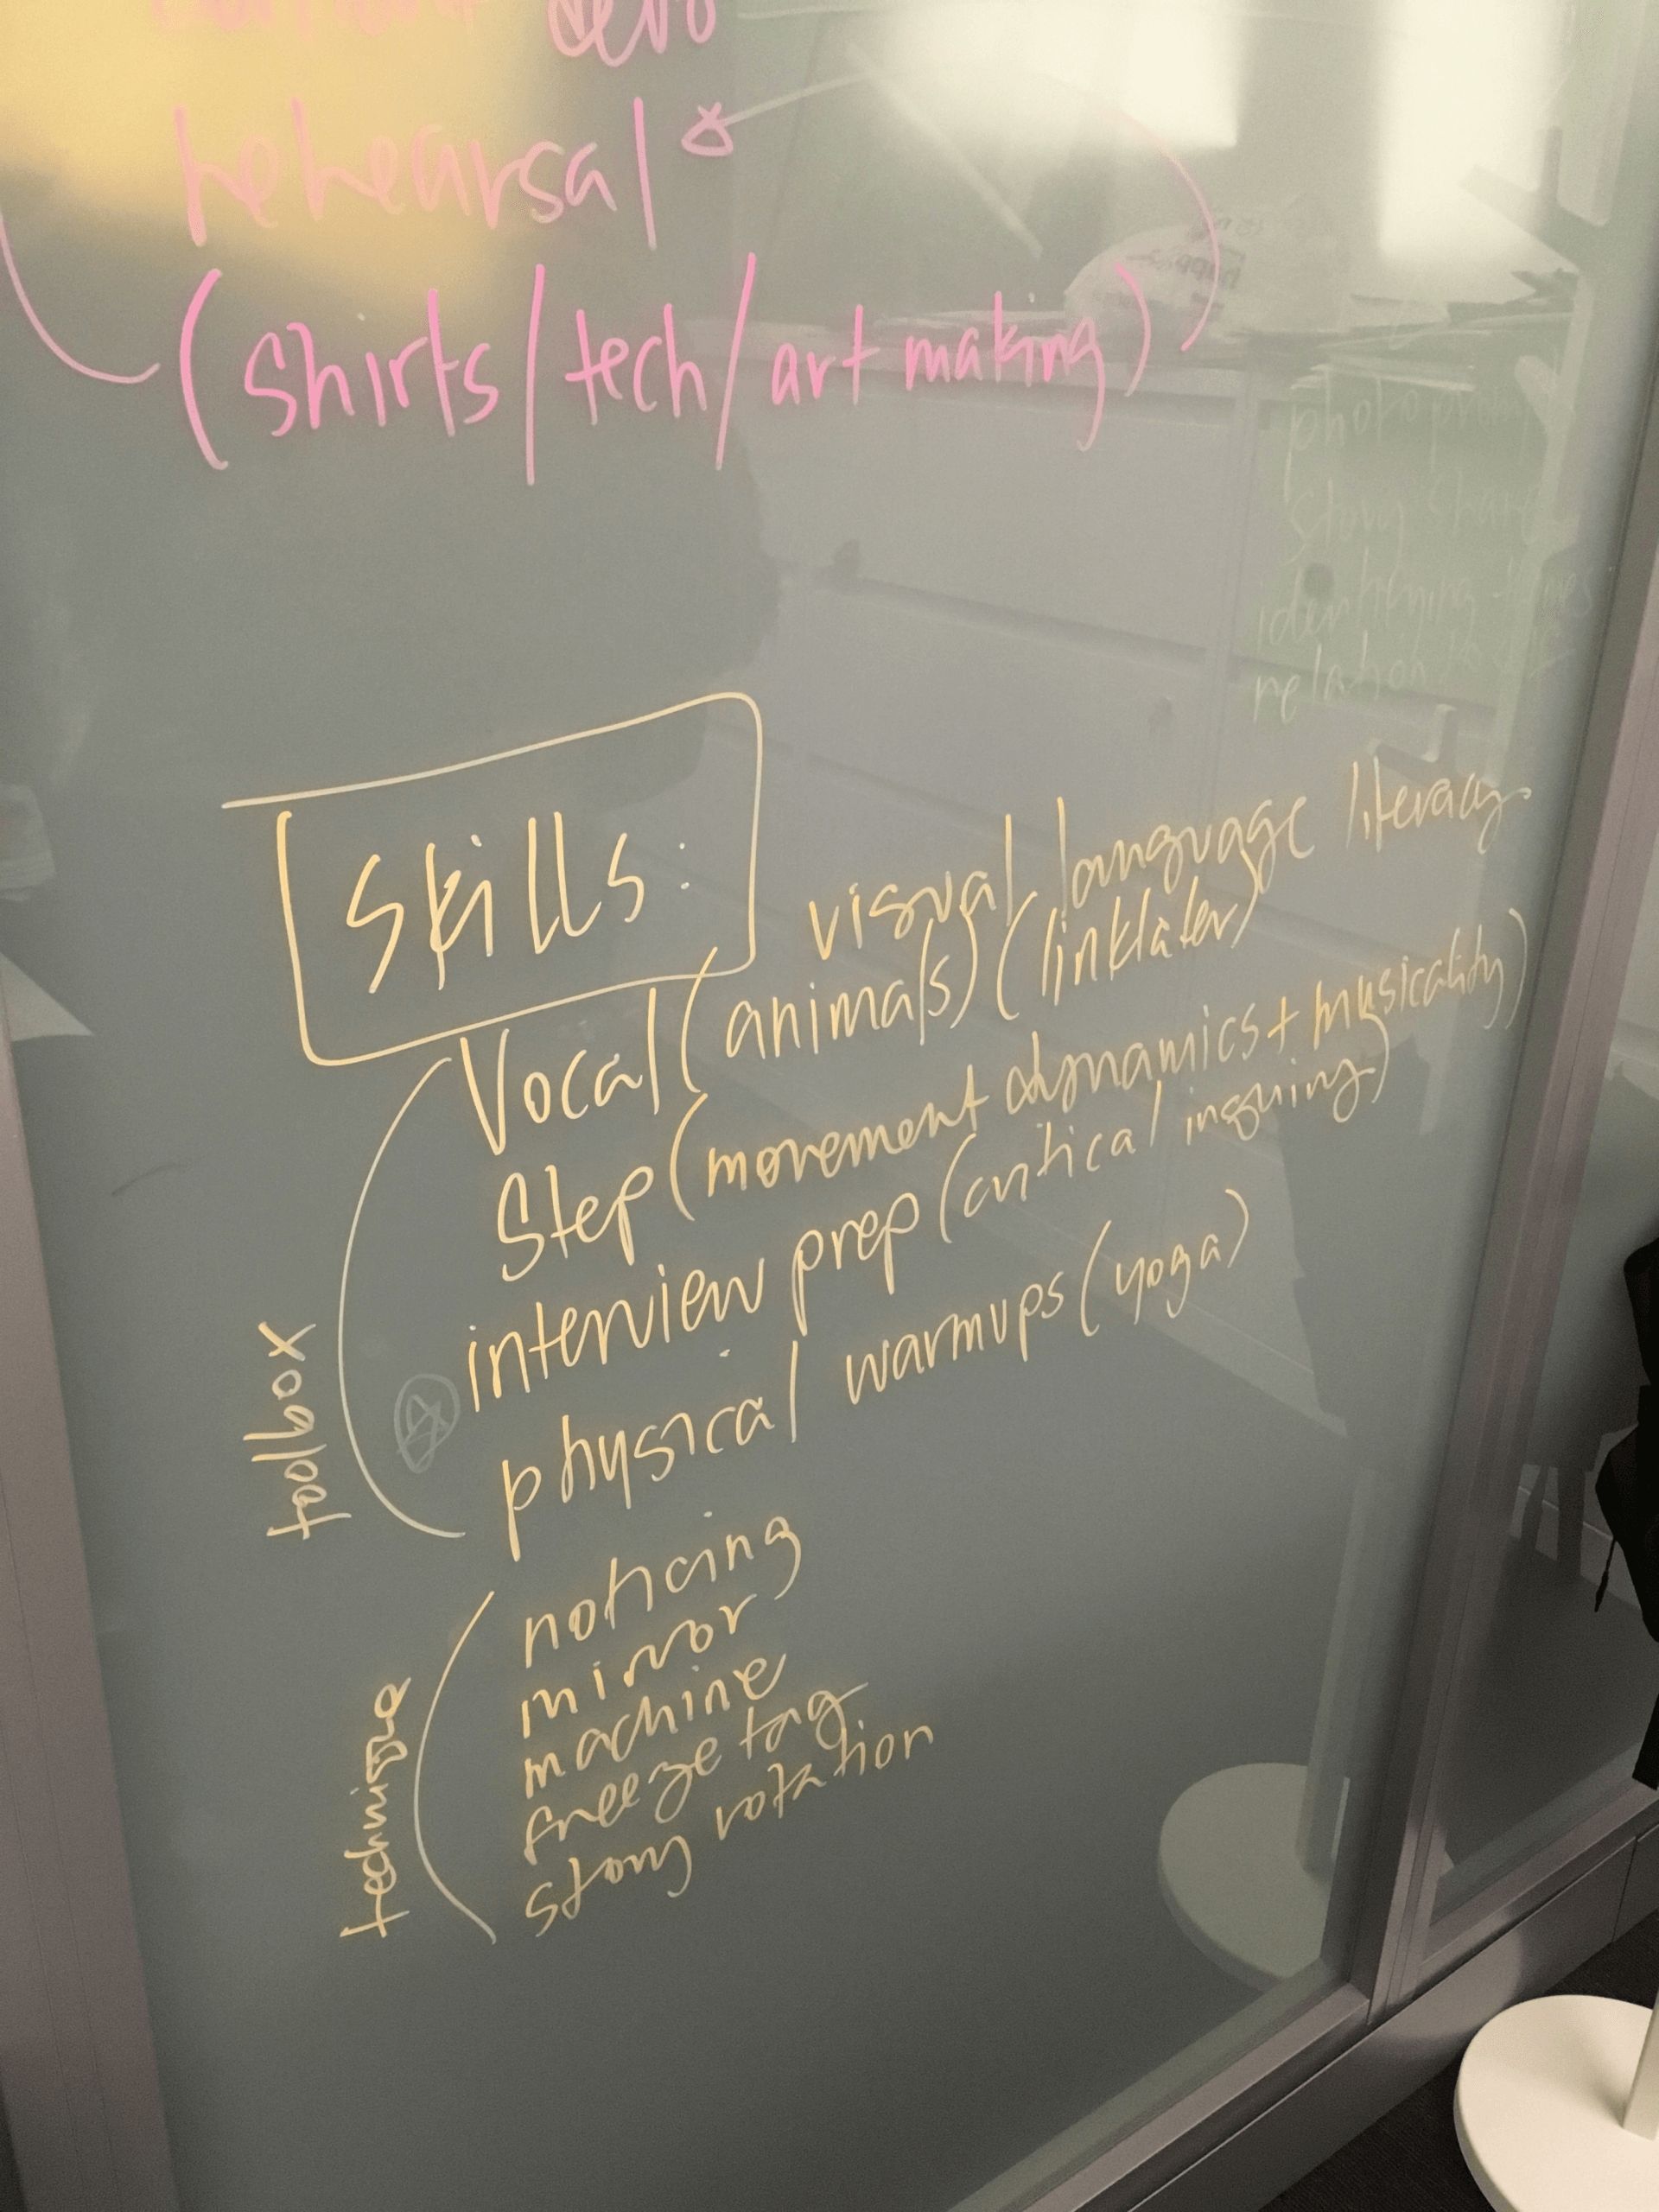 devo
rehearsal
(shirts/tech/art making)
photo
story share
identifying
relation
Skills:
visual language literacy
Vocal (animals) (linklater)
Step (movement dynamics + musicality)
interview prep (critical inquiring)
physical warmups (yoga)
toolbox
noticing
mirror
machine
freeze tag
story rotation
technique